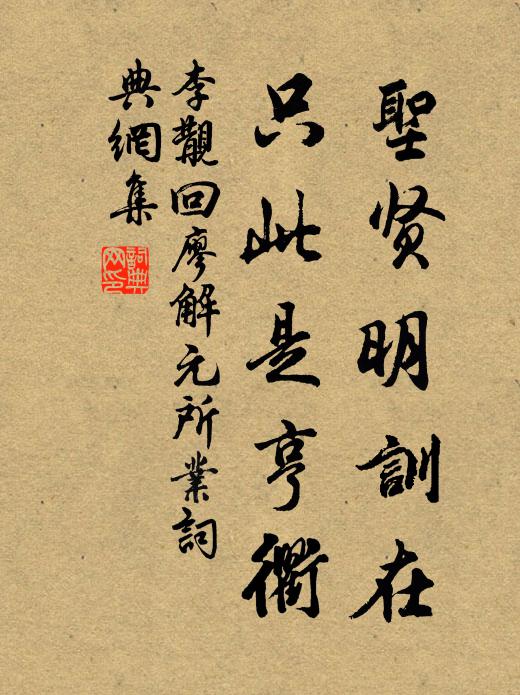 聖贤明訓在
只此是亨衢
李覯回廖解元所業詞
典網集
詞典网印